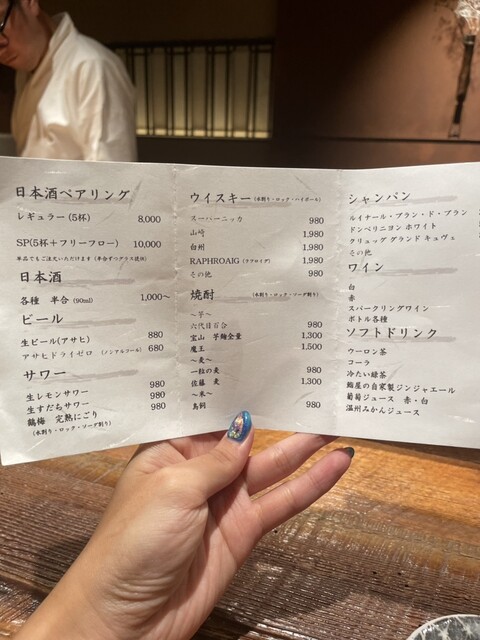 日本酒ペアリング
レギュラー (5杯) 8,000
SP(5杯＋フリーフロー) 10,000
単品でもご注文いただけます (半合ずつグラス提供)
日本酒
各種 半合 (90ml) 1,000～
ビール
生ビール(アサヒ) 880
アサヒドライゼロ (ノンアルコール) 680
サワー
生レモンサワー 980
生すだちサワー 980
鶴梅 完熟にごり 980
(水割り・ロック・ソーダ割り)
ウイスキー (水割り・ロック・ハイボール)
スーパーニッカ 980
山崎 1,980
白州 1,980
RAPHROAIG (ラフロイグ) 1,980
その他 980
焼酎 (水割り・ロック・ソーダ割り)
～芋～
六代目百合 980
宝山 芋麹全量 1,300
魔王 1,500
～麦～
一粒の麦 980
佐藤 麦 1,300
～米～
鳥飼 980
シャンパン
ルイナール・ブラン・ド・ブラン
ドンペリニヨン ホワイト
クリュッグ グランド キュヴェ
その他
ワイン
白
赤
スパークリングワイン
ボトル各種
ソフトドリンク
ウーロン茶
コーラ
冷たい緑茶
鮨屋の自家製ジンジャエール
葡萄ジュース 赤・白
温州みかんジュース